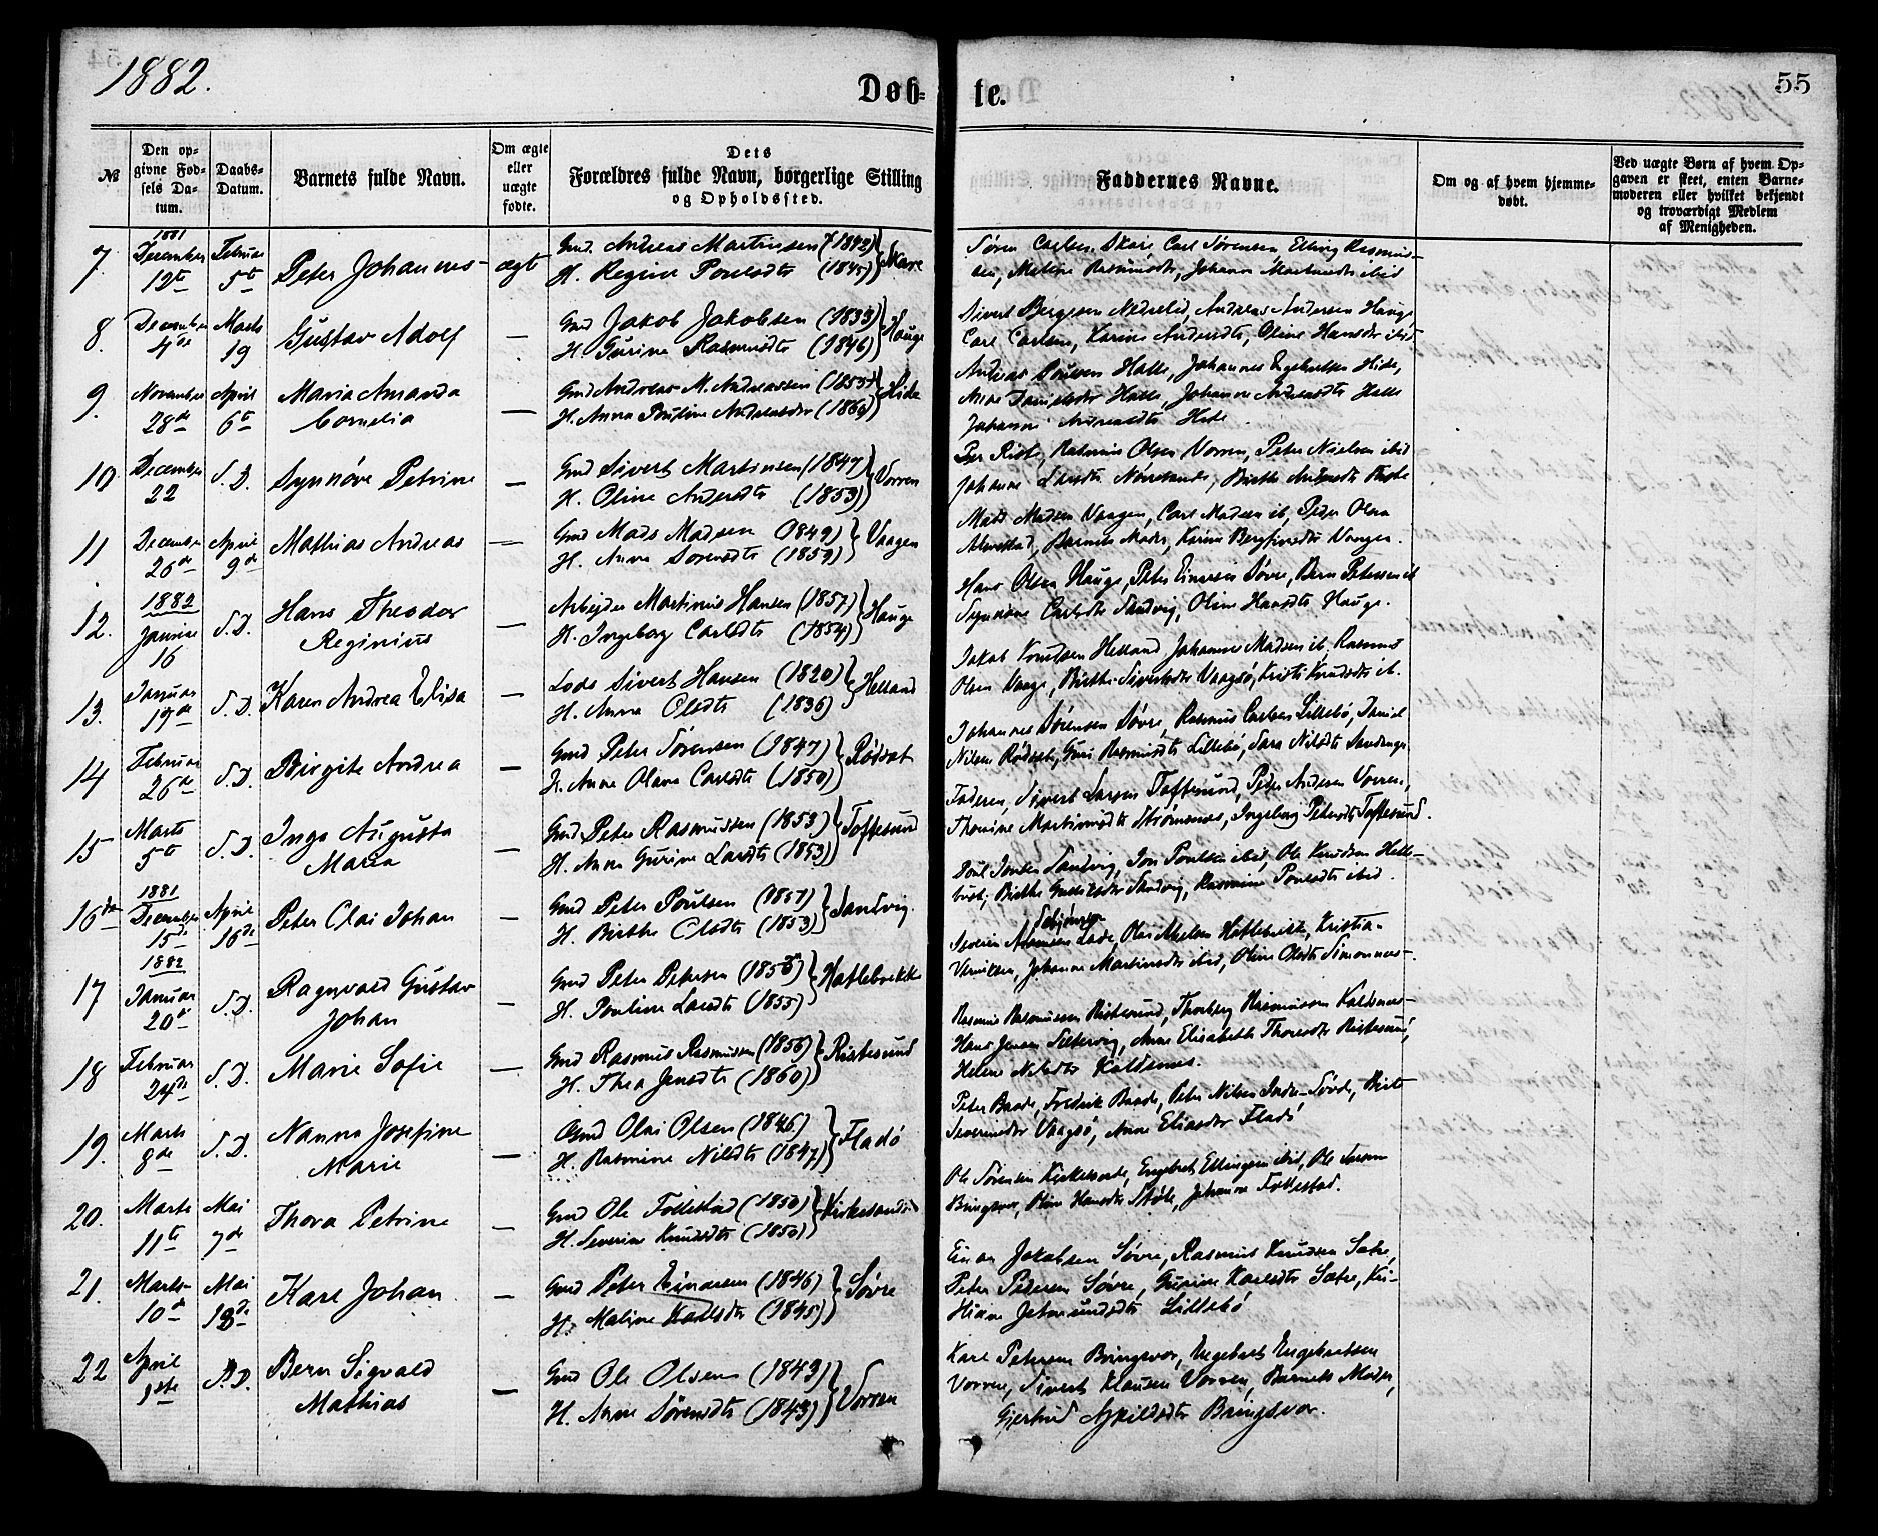 1882.
Døb-
te.
55
№
Den op-
givne Fød-
sels Da-
tum.
Daabs-
Datum.
Barnets fulde Navn.
Om ægte
eller
uægte
fødte.
Dets
Forældres fulde Navn, borgerlige Stilling
og Opholdssted.
Faddernes Navne.
Om og af hvem hjemme-
døbt.
Ved uægte Børn af hvem Op-
gaven er skeet, enten Barne-
moderen eller hvilket bekjendt
og troværdigt Medlem
af Menigheden.
1881
7. December 12te Februar 5te Peter Johannes ægte
Gmd. Andreas Martinsen (1842)
H. Regine Poulsdtr (1845) Skare
Søren Carlsen Skare, Carl Sørensen, Elling Rasmus-
sen, Johanne ibid
8. December 4de Marts 19 Gustav Adolf —
Gmd Jakob Jakobsen (1833)
H. Gurine Rasmusdtr (1846) Hauge
Sivert Bergesen Andreas Andersen Hauge
Carl Carlsen, Karine Andersdtr, Oline Hansdtr ibid
9. November 28de April 6te Maria Amanda
Cornelia —
Gmd Andreas M. Andreassen
H. Anna Andreasdtr (1860) Hide
Andreas Poulsen Halle, Johannes Hide,
Anne Danielsdtr Halle, Johanne Andreasdtr Halle
Johanne Hide.
10 December 22 S.D. Synnøve Petrine —
Gmd Sivert Martinsen (1847)
H. Oline Andersdtr (1853) Vorren
Per Riste, Rasmus Olsen Vorren, Peter Nielsen ibid
Johanne Larsdtr Birthe
11 December 26de April 9de Mathias Andreas —
Gmd Mads Madsen (1849)
H. Anne Sørensdtr (1859) Vaagen
Mads Madsen Vaagen, Carl Madsen ib, Peder Olsen
Barnets Moder, Karine Vaagen.
12. 1882
Januar 16 S.D. Hans Theodor
Reginius —
Arbejder Martinus Hansen (1857)
H. Ingeborg Carlsdtr (1854) Hauge
Hans Olsen Hauge, Peter Einarsen Søvre, Bern Petersen ib
Synnøve Carlsdtr Sandvig, Oline Hansdtr Hauge.
13. Januar 19de S.D. Karen Andrea Elisa —
Lods Sivert Hansen (1820)
H. Anna Olsdtr (1836) Helland
Jakob Knudsen Helland, Johannes Madsen ib, Rasmus
Olsen Vaage, Birthe Sivertsdtr Vaagsø, Kristi Knudsdtr ib.
14 Februar 26de S.D. Birgite Andrea —
Gmd Peter Sørensen (1847)
H. Anne Olava Carlsdtr (1850) Rødsæt
Johannes Sørensen Søvre, Rasmus Carlsen Lillebø, Daniel
Nilsen Rødsæt, Guri Rasmusdtr Lillebø, Sara Nilsdtr
15 Marts 5te S.D. Inga Augusta
Maria —
Gmd Peter Rasmussen (1853)
H. Anne Gurine Larsdtr (1853) Toftesund
Faderen, Sivert Larsen Toftesund, Peder Andersen Vorren,
Thomine Martinusdtr Strømsnes, Ingeborg Petersdtr Toftesund.
16de 1881
December 15de April 16de Peter Olai Johan
Gmd Peter Poulsen (1857)
H. Birthe Olsdtr (1853) Sandvig.
Poul Jonsen Sandvig, Jon Poulsen ibid, Ole Knudsen Helle-
Birthe Sandvig, Rasmine Poulsdtr ibid.
17 1882
Januar 20de S.D. Ragnvald Gustav
Johan —
Gmd Peter Petersen
H. Pouline Larsdtr (1855) Hatlebrekke
Severin Olai Hatlebrekke, Kristian
Johanne Martinusdtr ibid, Oline Olsdtr Simonnes.
18 Februar 24de S.D. Marie Sofie —
Gmd Rasmus Rasmussen (1856)
H. Thea Jensdtr (1860) Ristesund
Rasmus Rasmussen Ristesund, Thorberg Rasmussen Koldsnes
Hans Jensen Anne Elisabeth Thoresdtr Ristesund,
Helene Nilsdtr Koldsnes.
19. Marts 8de S.D. Nanna Josefine
Marie —
Gmd Olai Olsen (1846)
H. Rasmine Nilsdtr (1847) Fladø
Peter Baade, Fredrik Baade, Peter Nilsen Indre-Søvde, Birte
Severinsdtr Vaagsø, Anne Eliasdtr Fladø
20. Marts 11te Mai 7de Thora Petrine —
Gmd Ole Follestad (1850)
H. Severine Knudsdtr (1850) Kirkesande
Ole Sørensen Kirkesande, Engebret Ellingsen ibid, Ole Larsen
Bringsvor, Oline Hansdtr Støle, Johanne Follestad.
21. Marts 10de Mai 18de Karl Johan —
Gmd Peter Einarsen (1846)
H. Maline Karlsdtr (1845) Søvre
Einar Jakobsen Søvre, Rasmus Knudsen Sætre,
Peter Pedersen Søvre, Gurine Karlsdtr Sætre, Kri-
stiane Jetmundsdtr Lillebø
22 April 9de S.D. Bern Sigvald
Mathias —
Gmd Ole Olsen (1843)
H. Anne Sørensdtr (1843) Vorren
Karl Petersen Bringsvor, Engebret Engebretsen
Vorren, Sivert Klausen Vorren, Barnets Moder,
Gjertrud Bringsvor.